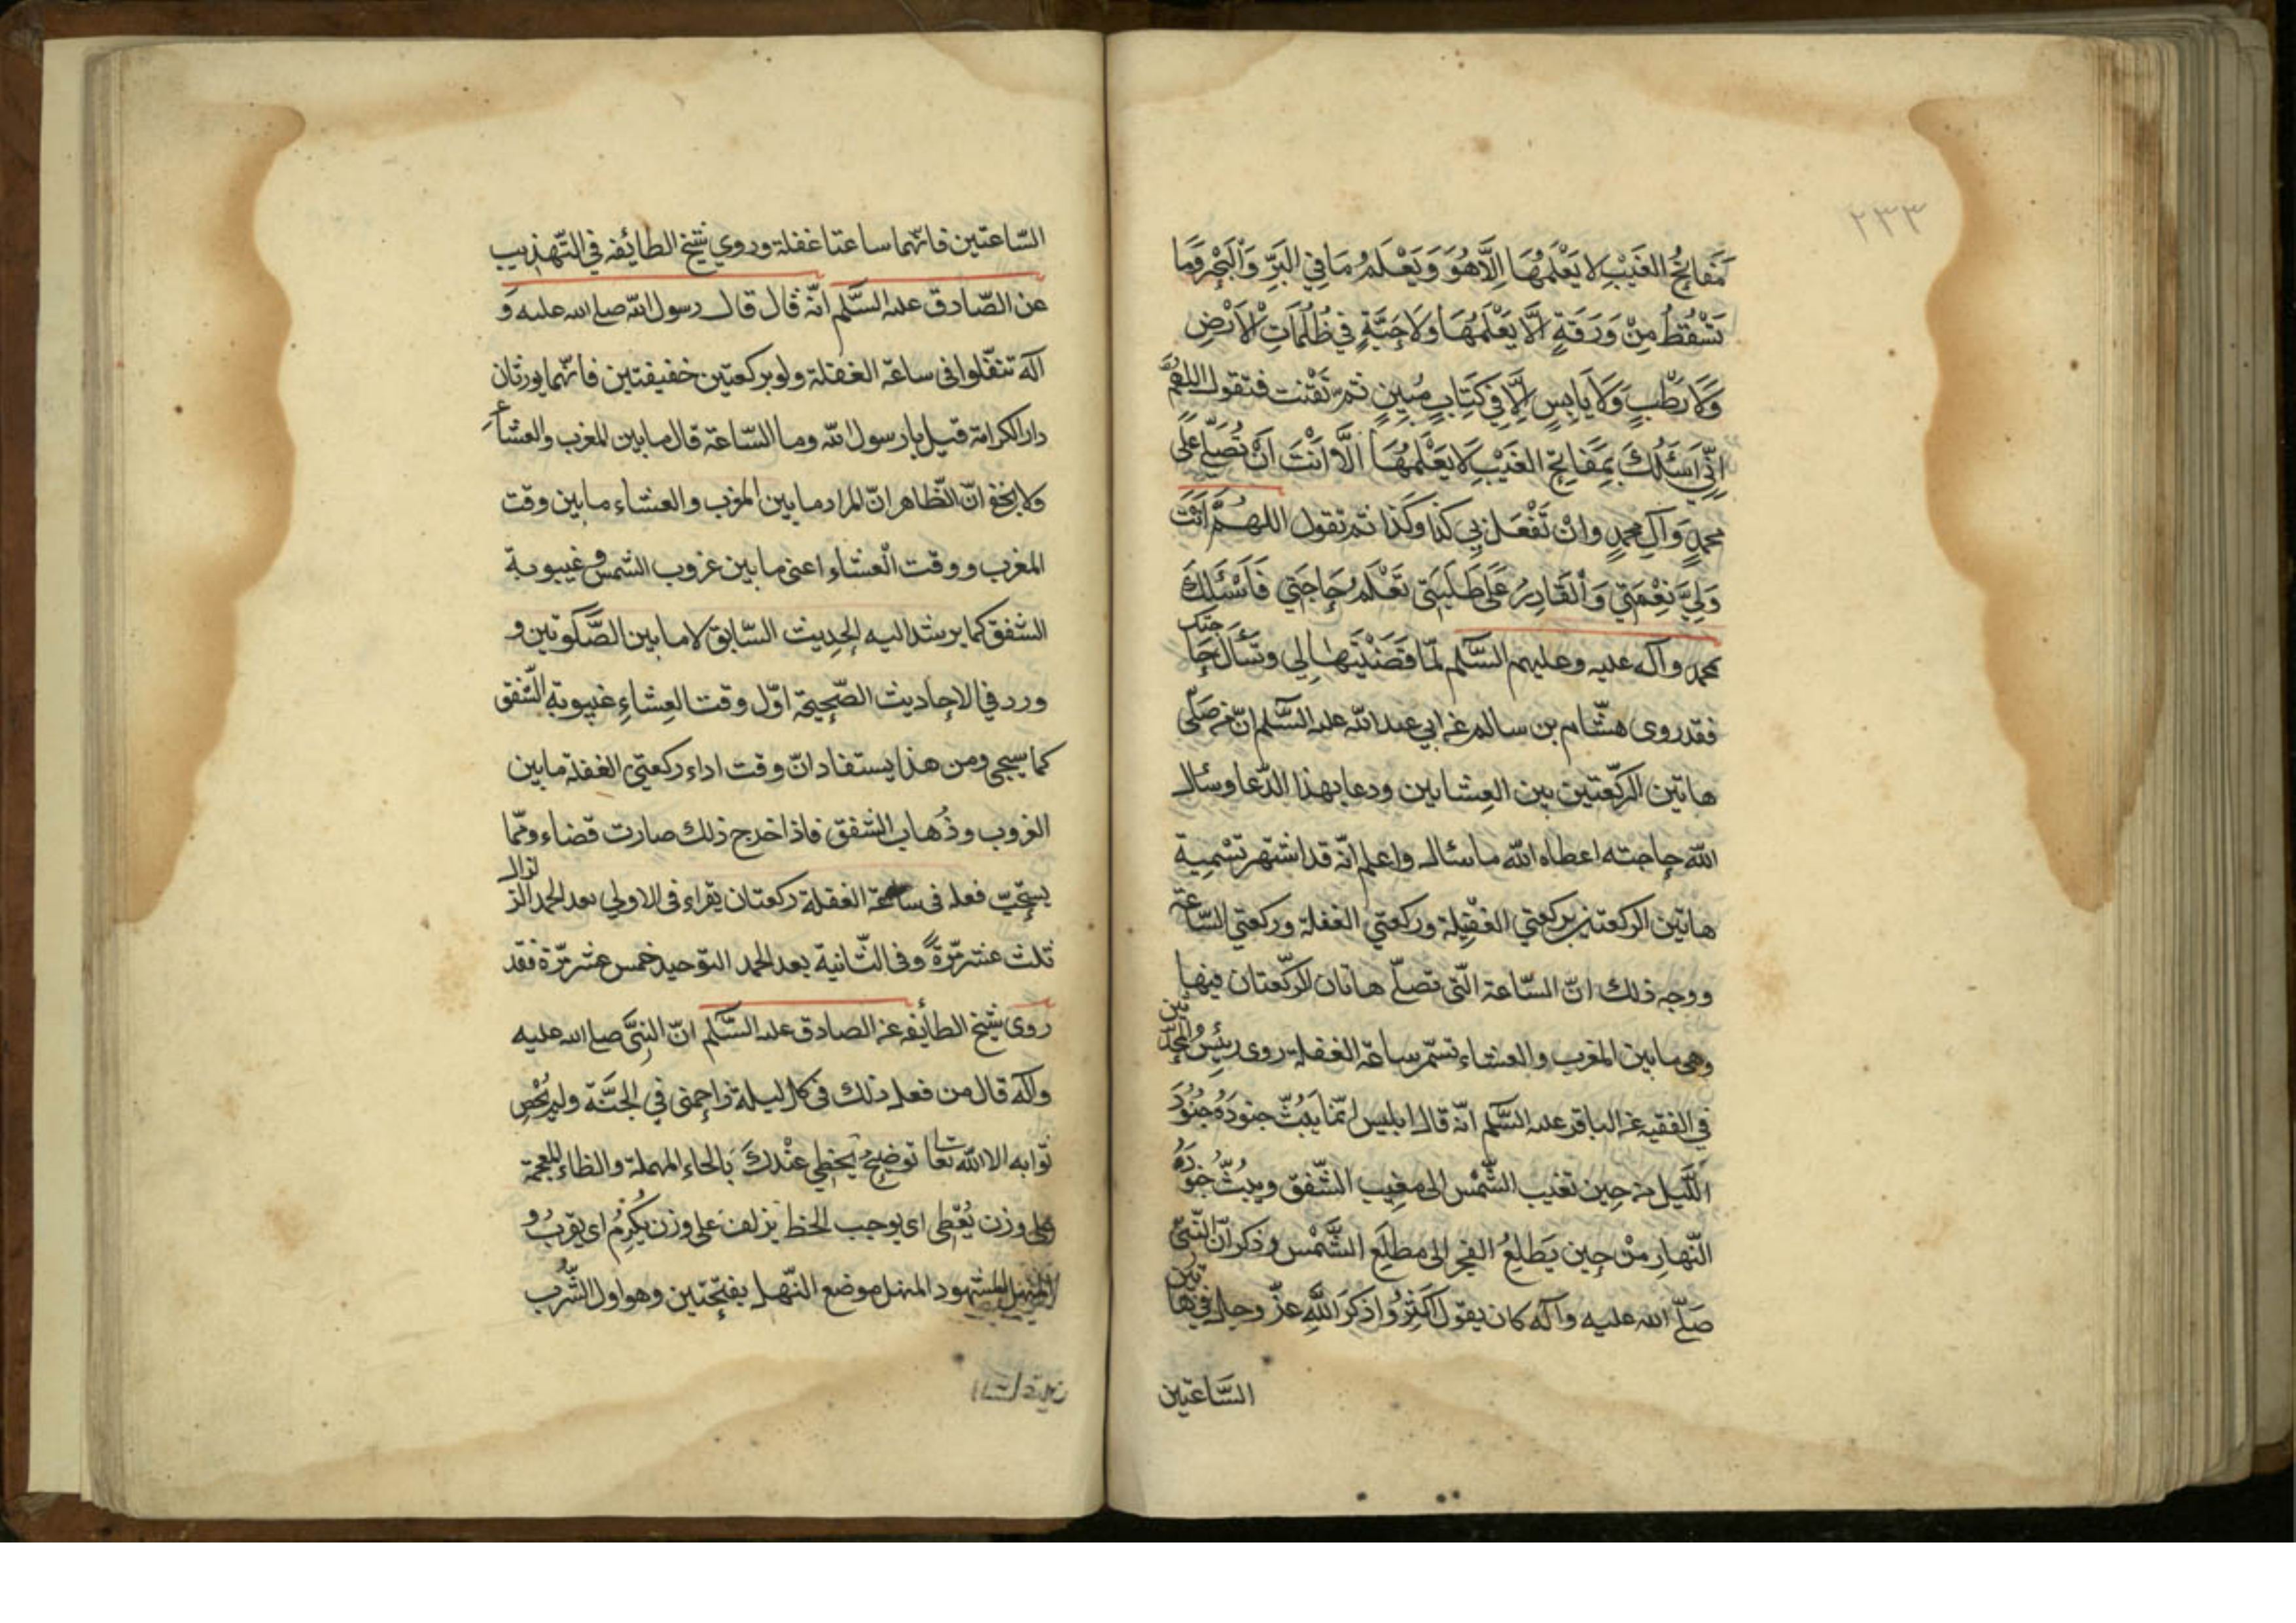 ٢٣٣
مَفَاتِحُ الغَيْبِ لا يَعْلَمُهَا اِلَّا هُوَ وَيَعْلَمُ مَا فِي البَرِّ وَالْبَحْرِ وَمَا
تَسْقُطُ مِنْ وَرَقَةٍ اِلَّا يَعْلَمُهَا وَلَا حَبَّةٍ فِي ظُلُمَاتِ الْاَرْضِ
وَلَا رَطْبٍ وَلَا يَابِسٍ اِلَّا فِي كِتَابٍ مُبِينٍ ثم تقنت فتقول اللهُمَّ
اِنِّي اَسْئَلُكَ بِمَفَاتِحِ الغَيْبِ لَا يَعْلَمُهَا اِلَّا اَنْتَ اَنْ تُصَلِّيَ عَلَى
محمدٍ وَآلِ محمدٍ وانْ تَفْعَلَ بِي كذا وكَذا ثم تقول اللهُمَّ اَنْتَ
وَلِيَّ نِعْمَتِي وَالْقَادِرُ عَلَى طَلِبَتِي تَعْلَمُ حَاجَتِي فَاَسْئَلُكَ
محمد وآله عليه وعليهم السَّلم لَمَّا قَضَيْتَهَا لِي وتَسْأَل حَاجتك
فقد روى هشام بن سالم عن ابي عبد الله عليه السَّلم انّ من صَلّى
هاتين الركعتين بين العِشاين ودعا بهذا الدّعا وسئال
الله حاجته اعطاه الله ما سئال واعلم انّه قد اشتهر تسْمِية
هاتين الركعتين بركعتي الغفيلة وركعتي الغفلة وركعتي السّاعة
ووجه ذلك انّ السّاعة الّتي تصلّى هاتان الركعتان فيها
وهى ما بين المغرب والعشاء تسمّى ساعة الغفلة روى رئيس المحدّثين
في الفقيه عن الباقر عليه السَّلم انّه قال ابليس انّما يَبُثّ جنودَهُ جُنُودَ
اللَّيل من حِين تغيب الشّمْس الى مغِيب الشّفق ويبُثّ جُنُودَهُ
النّهارِ مِنْ حِين يَطلِعُ الفجر الى مطلَعِ الشَّمْس وذكر انّ النّبيّ
صَلّى الله عليه وآله كان يقول اَكْثِرُوا ذكرَ اللّهِ عزّ وجل في هاتين
السَّاعتين
السّاعتين فانّهما ساعتا غفلة وروي شيخ الطائفه في التّهذيب
عن الصّادق عليه السَّلم انّه قال قال رسول الله صلى الله عليه و
آله تنفّلوا فى ساعة الغفلة ولو بركعتين خفيفتين فانّهما يورثان
دار الكرامة قيل يا رسول الله وما السّاعة قال ما بين المغرب والعشاء
ولا يخفى انّ الظاهر انّ المراد ما بين المغرب والعشاء ما بين وقت
المغرب ووقت العشاء اعنى ما بين غروب الشمس وغيبوبة
الشفق كما يرشد اليه الحديث السّابق لا ما بين الصَّلوتين و
ورد في الاحاديث الصّحيحة اوّل وقت العِشاءِ غيبوبة الشّفق
كما سيجى ومن هذا يستفاد انّ وقت اداء ركعتي الغفلة ما بين
الغروب وذُهاب الشفق فاذا خرج ذلك صارت قضاء وممّا
يستحبّ فعله فى ساعة الغفلة ركعتان يقراء فى الاولي بعد الحمد الزلزال
ثلث عشر مرّةً وفى الثّانية بعد الحمد التوحيد خمس عشر مرّة فقد
روى شيخ الطائفه عن الصادق عليه السَّلم انّ النبيّ صلى الله عليه
وآله قال من فعل ذلك فى كل ليلة زاحمنى في الجنَّة ولم يُحْصِ
ثوابه الا الله تعا توضيحٌ يُحظِي عِنْدكَ بالحاء المهملة والظاء المعجمة
على وزن يُعْطِى اى يوجب الحَظ يزلف على وزن يُكْرِمُ اى يقرب و
المنهل المشهود المنهل موضع النّهل بفتحتين وهو اول الشُّرب